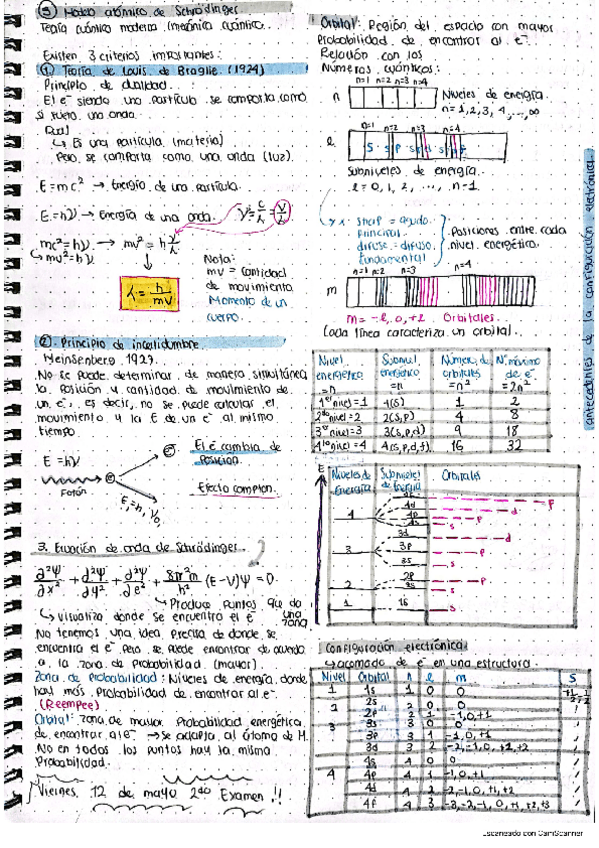 ⑤ Modelo atómico de Schrödinger.
Teoría cuántica moderna (mecánica cuántica.
Existen 3 criterios importantes:
① Teoría de Louis de Broglie. (1924)
Principio de dualidad.
El e⁻ siendo una partícula se comporta como
si fuera una onda.
Dual
↳ Es una partícula (materia)
Pero se comporta como una onda (luz).
E=mc² → Energía de una partícula.
E=hν → Energía de una onda. ν=c/λ=v/λ
mc²=hν → mv²=h v/λ
↳ mv²=hν
λ = h/mv
Nota:
mv = cantidad
de movimiento
Momento de un
cuerpo.
② Principio de incertidumbre
Heinsenberg 1927.
No se puede determinar de manera simultánea
la posición y cantidad de movimiento de
un e⁻, es decir, no se puede calcular el
movimiento y la E de un e⁻ al mismo
tiempo
E=hν
Fotón
El e⁻ cambia de
posición.
Efecto compton.
3. Ecuación de onda de Schrödinger.
∂²Ψ/∂x² + ∂²Ψ/∂y² + ∂²Ψ/∂z² + 8π²m/h² (E-V)Ψ=0
↳ Produce puntos que da una zona
↳ visualiza donde se encuentra el e⁻
No tenemos una idea precisa de donde se
encuentra el e⁻ pero se puede encontrar de acuerdo
a la zona de probabilidad. (mayor).
Zona de probabilidad: Niveles de energía donde
hay más probabilidad de encontrar al e⁻
(Reempee)
Orbital: zona de mayor probabilidad energética
de encontrar al e⁻ → se adapta al átomo de H.
No en todos los puntos hay la misma
probabilidad.
Viernes 12 de mayo 2do Examen!!
Orbital: Región del espacio con mayor
probabilidad de encontrar al e⁻
Relación con los
Números cuánticos:
n=1 n=2 n=3 n=4
n Niveles de energía.
n=1,2,3,4,...,∞
n=1 n=2 n=3 n=4
l S s p s p d s p d f
Subniveles de energía.
l=0, 1, 2, ..., n-1
sharp = agudo.
principal
difuse = difuso
fundamental
Posiciones entre cada
nivel energético.
n=1 n=2 n=3 n=4
m
m = -l, 0, +l Orbitales.
Cada línea caracteriza un orbital.
Nivel energético =n | Subnivel energético =n | Número de orbitales =n² | Nº máximo de e⁻ =2n²
1er nivel=1 | 1(s) | 1 | 2
2do nivel=2 | 2(s,p) | 4 | 8
3er nivel=3 | 3(s,p,d) | 9 | 18
4to nivel=4 | 4(s,p,d,f) | 16 | 32
E
Niveles de Energía | Subnivel de Energía | Orbitales
4f f
4 4d d
4p p
4s s
3d d
3 3p p
3s s
2 2p p
2s s
1 1s s
Configuración electrónica
↳ acomodo de e⁻ en una estructura.
Nivel Orbital n l m S
1 1s 1 0 0 +1/2 -1/2
2 2s 2 0 0
2p 2 1 -1,0,+1
3 3s 3 0 0
3p 3 1 -1,0,+1
3d 3 2 -2,-1,0,+1,+2
4s 4 0 0
4 4p 4 1 -1,0,+1
4d 4 2 -2,-1,0,+1,+2
4f 4 3 -3,-2,-1,0,+1,+2,+3
antecedentes de la configuración electrónica.
Escaneado con CamScanner